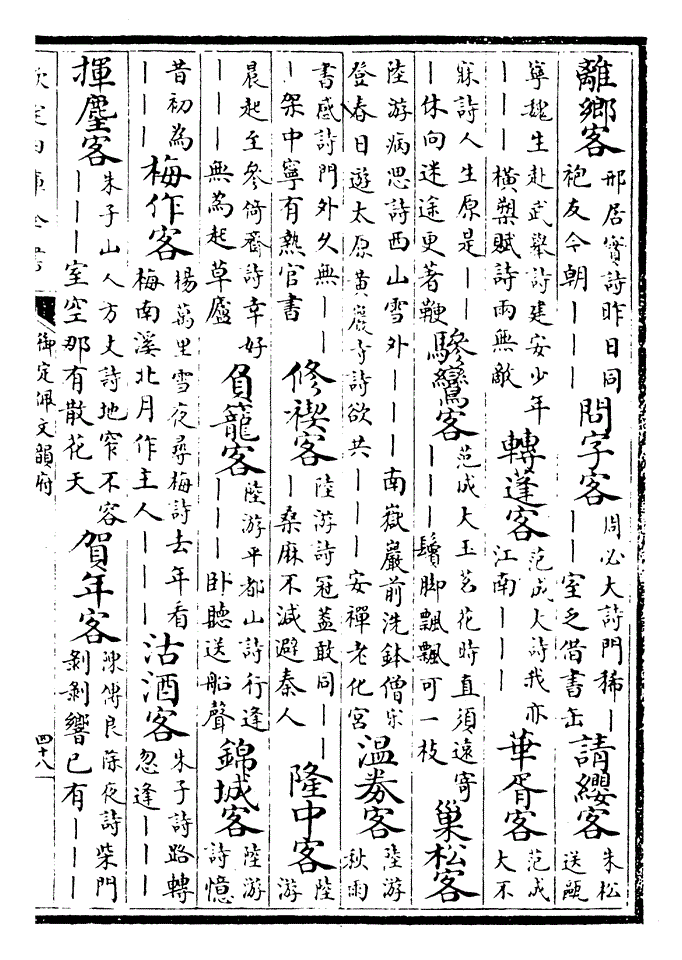 離鄉客
邢居實詩昨日同
袍友今朝｜｜｜
問字客
周必大詩門稀｜
｜｜室乏借書缶
請纓客
朱松
送甌
寧魏生赴武舉詩建安少年
｜｜｜橫槊賦詩雨無敵
轉蓬客
范成大詩我亦
江南｜｜｜
華胥客
范成
大不
寐詩人生原是｜｜
｜休向迷途更著鞭
驂鸞客
范成大玉茗花時直須遠寄
｜｜｜鬢脚飄飄可一枝
巢松客
陸游病思詩西山雪外｜｜｜南嶽巖前洗鉢僧宋
登春日遊太原黃巖寺詩欲共｜｜｜安禪老化宮
溫劵客
陸游
秋雨
書感詩門外久無｜｜
｜架中寧有熱官書
修禊客
陸游詩冠蓋敢同｜｜
｜桑麻不減避秦人
隆中客
陸
游
晨起至參倚齋詩幸好
｜｜｜無為起草廬
負籠客
陸游平都山詩行逢
｜｜｜卧聽送船聲
錦城客
陸游
詩憶
昔初為
｜｜｜
梅作客
楊萬里雪夜尋梅詩去年看
梅南溪北月作主人｜｜｜
沽酒客
朱子詩路轉
忽逢｜｜｜
揮麈客
朱子山人方丈詩地窄不容
｜｜｜室空那有散花天
賀年客
陳傅良除夜詩柴門
剝剝響已有｜｜｜
欽定四庫全書
御定佩文韻府
四十八